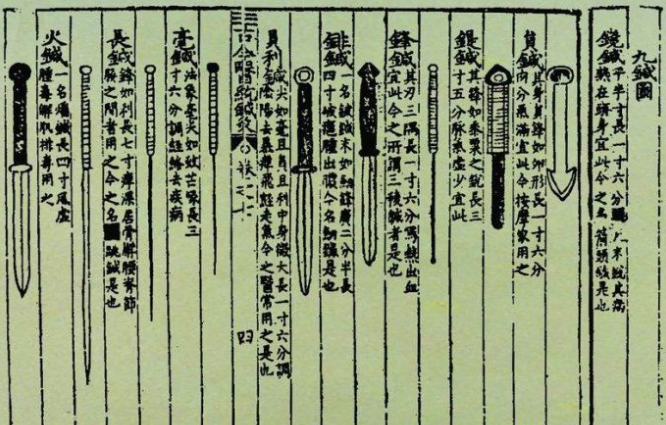 九鍼圖
鑱鍼平半寸長一寸六分 大末銳其病
熱在頭身宜此今之名箭頭鍼是也
員鍼其身員鋒如卵形長一寸六分
肉分氣滿宜此今按摩家用之
鍉鍼其鋒如黍粟之銳長三
寸五分脉氣虛少宜此
鋒鍼其刃三隅長一寸六分瀉熱出血
宜此今之所謂三稜鍼者是也
一名鈹鍼末如劒鋒廣二分半長
四寸破癰腫出膿今名劒鍼是也
員利鍼尖如毫且員且利中身微大長一寸六分調
陰陽去暴痺飛經走氣今之醫常用之是也
古今醫統 卷之 四
毫鍼法象毫尖如蚊芒喙長三
寸六分調經絡去疾病
長鍼鋒如利長七寸痺深居骨解腰脊節
腠之間者用之今之名 跳鍼是也
火鍼一名燔鍼長四寸風虛
腫毒解肌排毒用之